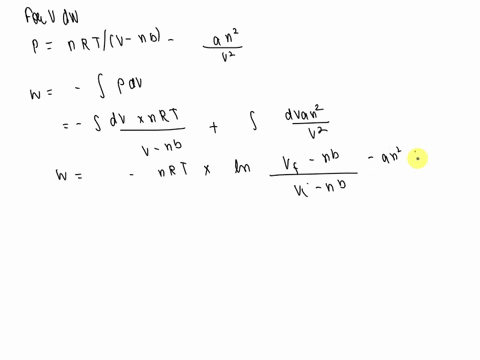 For V dW
P = nRT/(V - nb) - an²/V²
W = - ∫ P dV
= - ∫ dV × nRT / V - nb + ∫ dV an² / V²
W = - nRT × ln Vf - nb / Vi - nb - an²